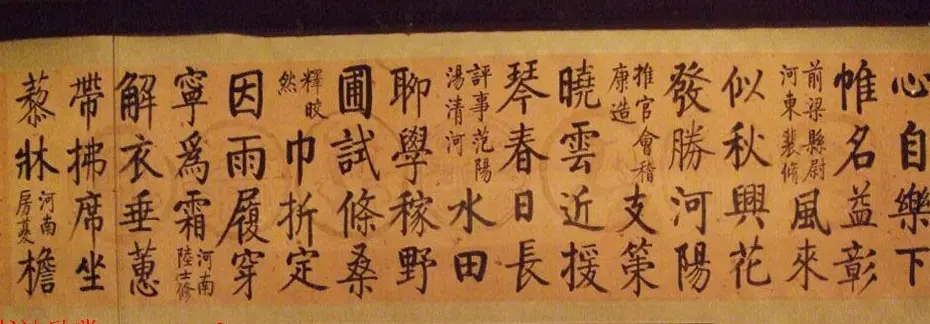 心自樂下
帷名益彰
前梁縣尉
河東裴脩
風來
似秋興花
發勝河陽
推官會稽
康造
支策
曉雲近援
琴春日長
評事范陽
湯清河
水田
聊學稼野
圃試條桑
釋皎
然
巾折定
因雨履穿
寧爲霜
河南
陸士修
解衣垂蕙
帶拂席坐
藜牀
河南
房夔
檐